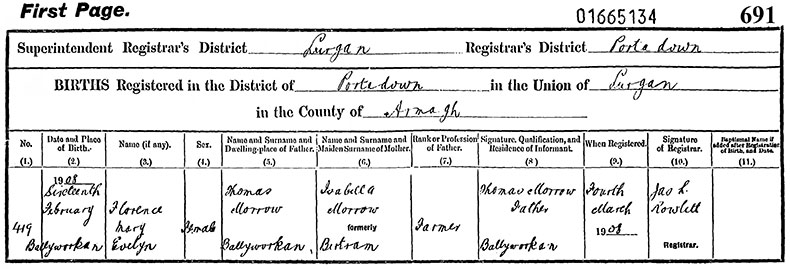 First Page.
01665134 691
Superintendent Registrar's District Lurgan Registrar's District Portadown
BIRTHS Registered in the District of Portadown in the Union of Lurgan
in the County of Armagh
No. (1.)
Date and Place of Birth. (2.)
Name (if any). (3.)
Sex. (4.)
Name and Surname and Dwelling-place of Father. (5.)
Name and Surname and Maiden Surname of Mother. (6.)
Rank or Profession of Father. (7.)
Signature, Qualification, and Residence of Informant. (8)
When Registered. (9.)
Signature of Registrar. (10.)
Baptismal Name if added after Registration of Birth, and Date. (11.)
419
1908
Sixteenth
February
Ballyworkan
Florence
Mary
Evelyn
Female
Thomas
Morrow
Ballyworkan.
Isabella
Morrow
formerly
Bertram
Farmer
Thomas Morrow
Father
Ballyworkan
Fourth
March
1908
Jas L.
Rowlett
Registrar.